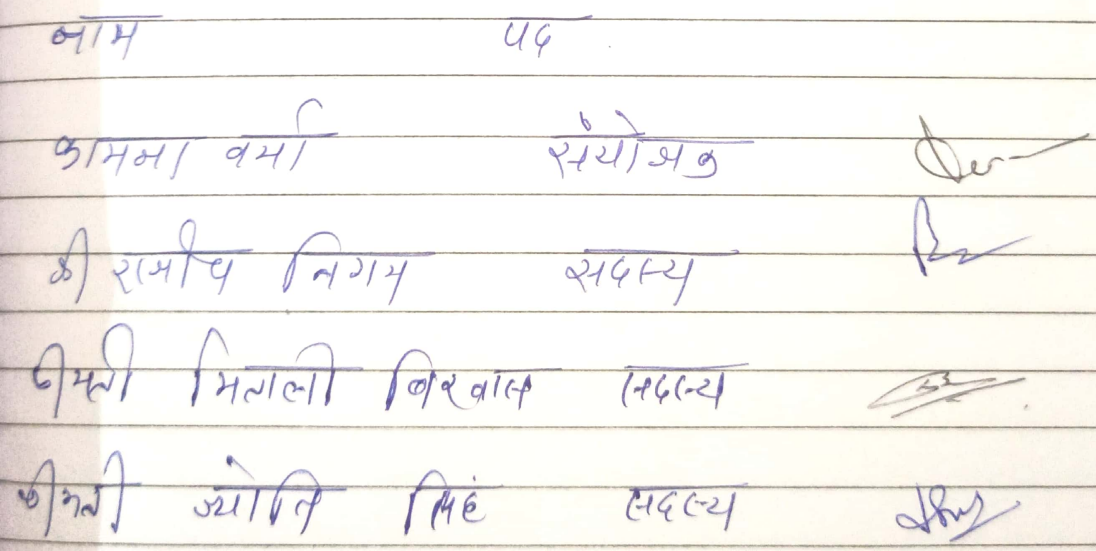 नाम पद
कामना वर्मा संयोजक
श्री राजीव निगम सदस्य
श्रीमती मिताली विश्वास सदस्य
श्रीमती ज्योति सिहं सदस्य